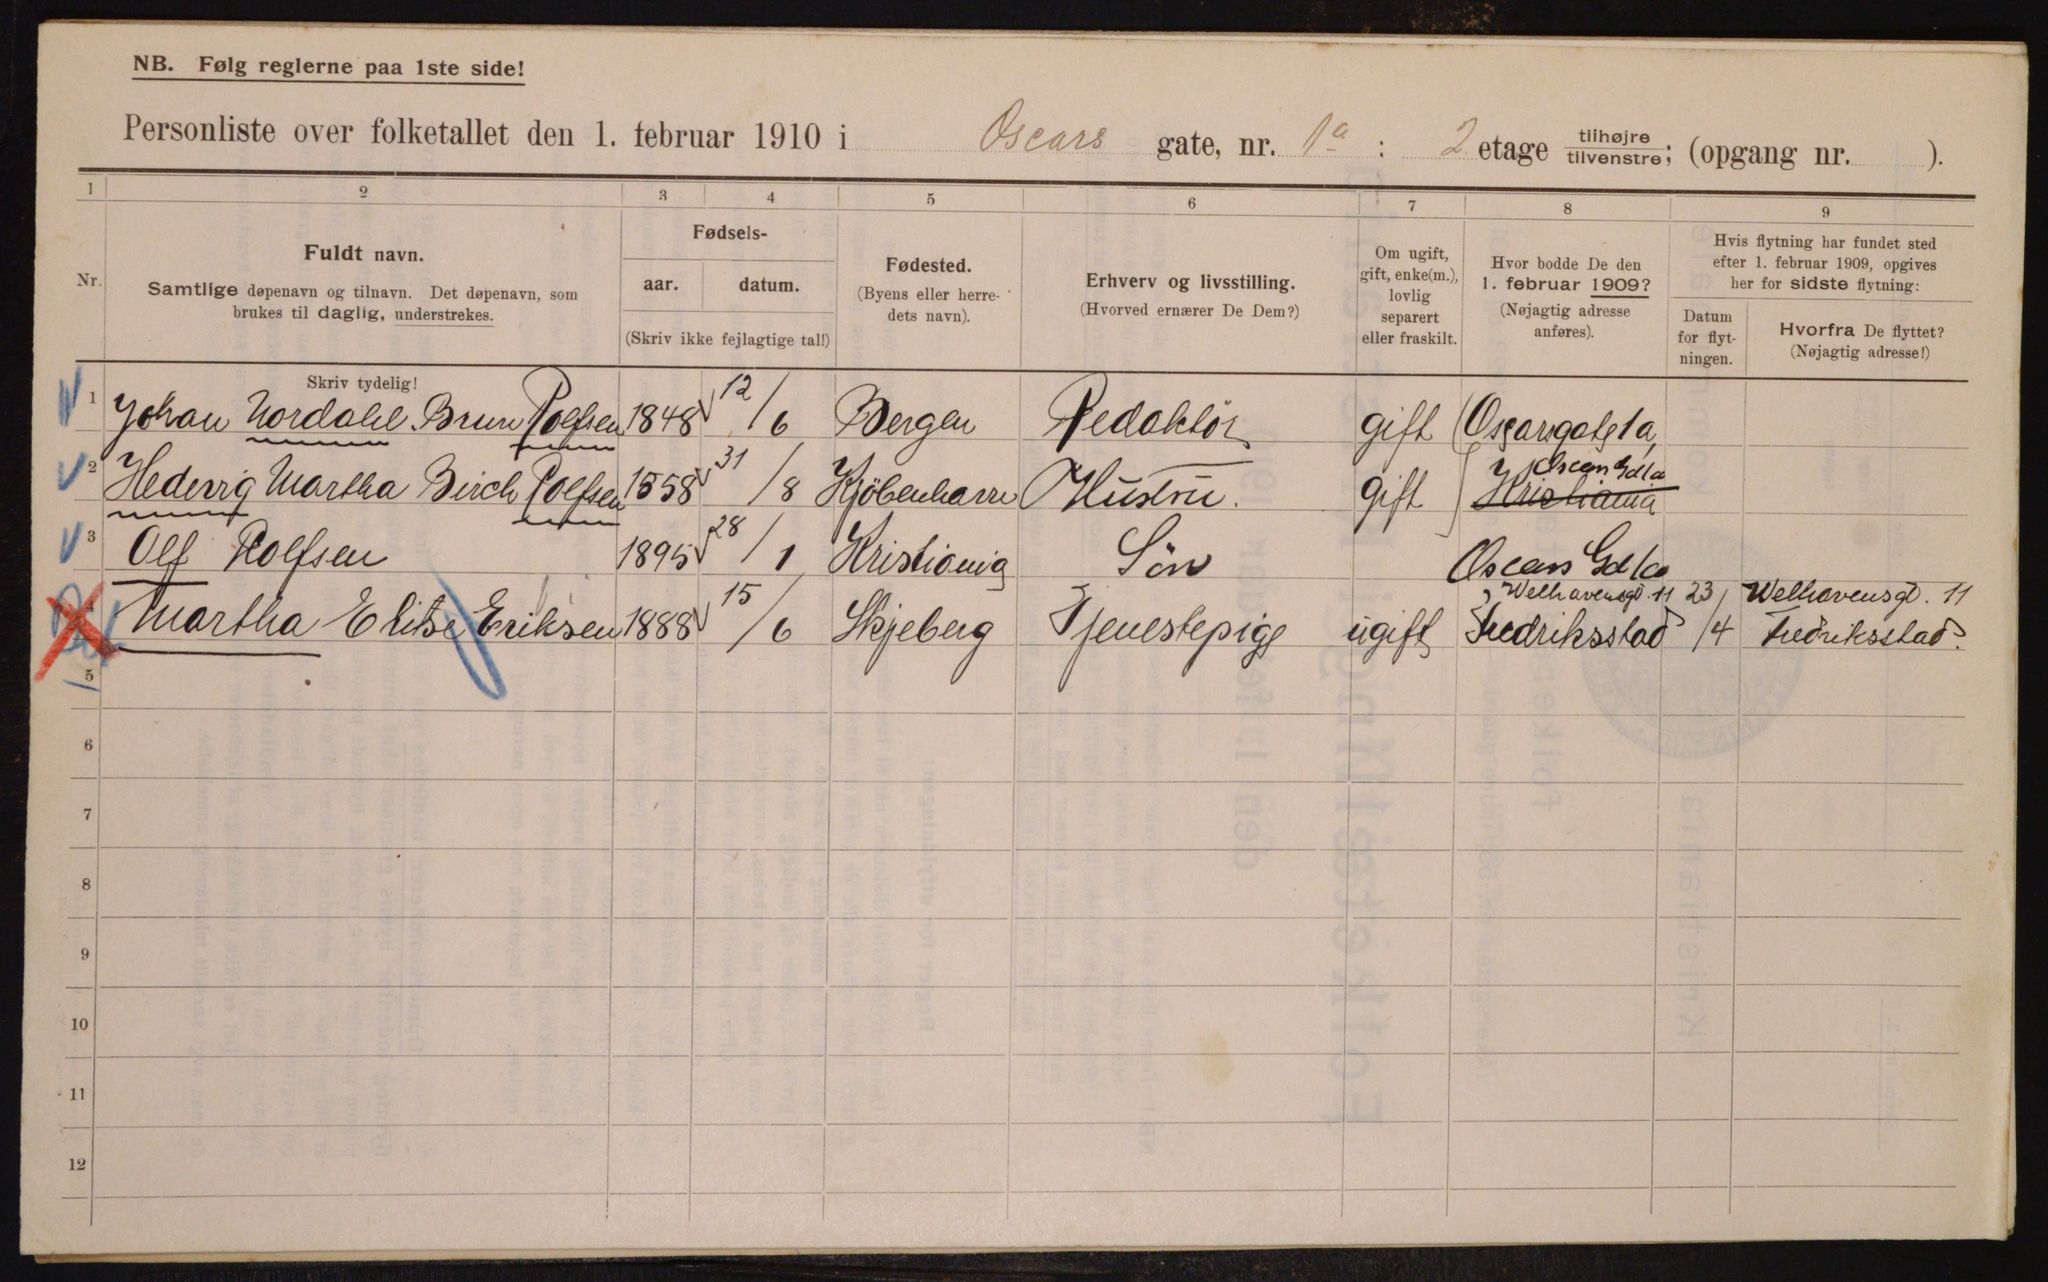 NB. Følg reglerne paa 1ste side!
Personliste over folketallet den 1. februar 1910 i Oscars gate, nr. 1a : 2 etage tilhøjre/tilvenstre; (opgang nr. ).
1 2 3 4 5 6 7 8 9
Nr.
Fuldt navn.
Samtlige døpenavn og tilnavn. Det døpenavn, som
brukes til daglig, understrekes.
Skriv tydelig!
Fødsels-
aar. datum.
(Skriv ikke fejlagtige tal!)
Fødested.
(Byens eller herre-
dets navn).
Erhverv og livsstilling.
(Hvorved ernærer De Dem?)
Om ugift,
gift, enke(m.),
lovlig
separert
eller fraskilt.
Hvor bodde De den
1. februar 1909?
(Nøjagtig adresse
anføres).
Hvis flytning har fundet sted
efter 1. februar 1909, opgives
her for sidste flytning:
Datum
for flyt-
ningen.
Hvorfra De flyttet?
(Nøjagtig adresse!)
1 Johan Nordahl Brun Rolfsen 1848 12/6 Bergen Redaktör gift Oscarsgate 1a
Oscars Gd 1a
2 Hedevig Martha Birch Rolfsen 1858 31/8 Kjöbenhavn Hustru. gift Kristiania
3 Olf Rolfsen 1895 28/1 Kristiania Sön Oscars Gd 1a
Welhavensgt. 11 Welhavensgt. 11
4 Martha Elise Eriksen 1888 15/6 Skjeberg Tjenestepige ugift Fredriksstad 23/4 Fredriksstad.
5
6
7
8
9
10
11
12